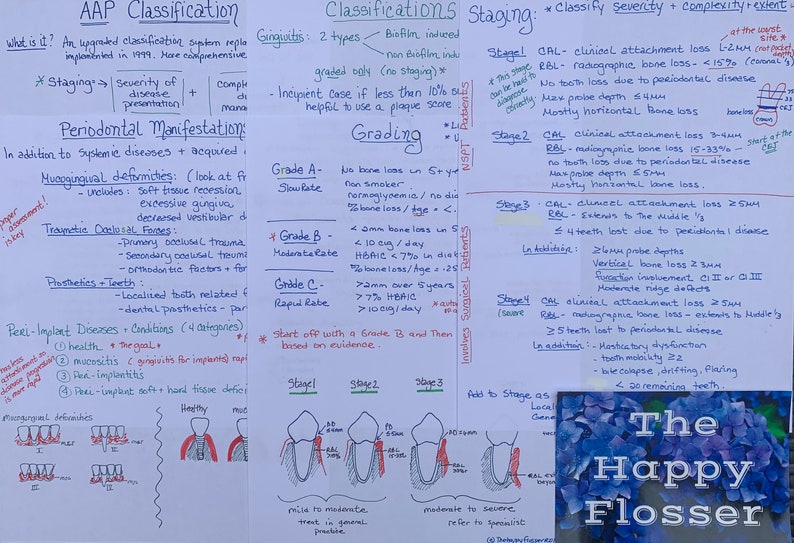 AAP Classification
What is it? An upgraded classification system repla
implemented in 1999. More comprehensive
* Staging => severity of disease presentation +
Periodontal Manifestations
In addition to systemic diseases + acquired
Mucogingival deformities: (look at fr
- includes: soft tissue recession,
excessive gingiva,
decreased vestibular d
proper assessment! is key
Traumatic Occlusal Forces:
- Primary occlusal trauma
- Secondary occlusal trauma
- orthodontic factors + for
Prosthetics + Teeth:
- Localized tooth related f
- dental prosthetics - par
Peri-Implant Diseases + Conditions (4 categories)
① health * The goal *
② mucositis (gingivitis for implants) rapi
③ Peri-implantitis
④ Peri-implant soft + hard tissue defici
has less attachment so disease progression is more rapid
Mucogingival deformities
I
II
III
IV
Healthy
Classifications
Gingivitis: 2 types
Biofilm induced
non Biofilm indu
graded only (no staging) *
- Incipient case if less than 10% su
helpful to use a plaque score
Grading
Grade A -
Slow Rate
No bone loss in 5+ y
non smoker
normoglycemic / no dia
% bone loss / age = < .
* Grade B -
Moderate Rate
< 2mm bone loss in 5
< 10 cig / day
HBAIC < 7% in diab
% bone loss / Age = .25
Grade C -
Rapid Rate
> 2mm over 5 years
> 7% HBAIC
> 10 cig / day
* Start off with a Grade B and Then
based on evidence.
Stage 1
Stage 2
Stage 3
PD ≤4mm
RBL
PD ≤5mm
RBL 15-33%
RBL
mild to moderate
treat in general
practice
moderate to severe
refer to specialist
Staging: * Classify severity + complexity + extent
Stage 1 CAL - clinical attachment loss 1-2mm
at the worst site * (not pocket depth)
RBL - radiographic bone loss - <15% (coronal ⅓)
No tooth loss due to periodontal disease
Max probe depth ≤4mm
Mostly horizontal Bone loss
* This stage can be hard to diagnose correctly.
bone loss
crown
CEJ
Stage 2 CAL clinical attachment loss 3-4mm
RBL - radiographic bone loss 15-33%
start at the CEJ
no tooth loss due to periodontal disease
Max probe depth ≤5mm
Mostly horizontal bone loss.
NSPT Patients
Stage 3 CAL - clinical attachment loss ≥5mm
RBL - Extends to the Middle ⅓
≤ 4 teeth lost due to periodontal disease
In Addition: ≥6mm probe depths
Vertical bone loss ≥3mm
Furcation involvement Cl II or Cl III
Moderate ridge defects
Stage 4 CAL clinical attachment loss ≥5mm
(severe
RBL - radiographic bone loss - extends to Middle ⅓
≥ 5 teeth lost to periodontal disease
In addition: - Masticatory dysfunction
- tooth mobility ≥2
- bite collapse, drifting, flaring
< 20 remaining teeth.
Involves Surgical Patients
Add to Stage as
Local
Gene
The
Happy
Flosser